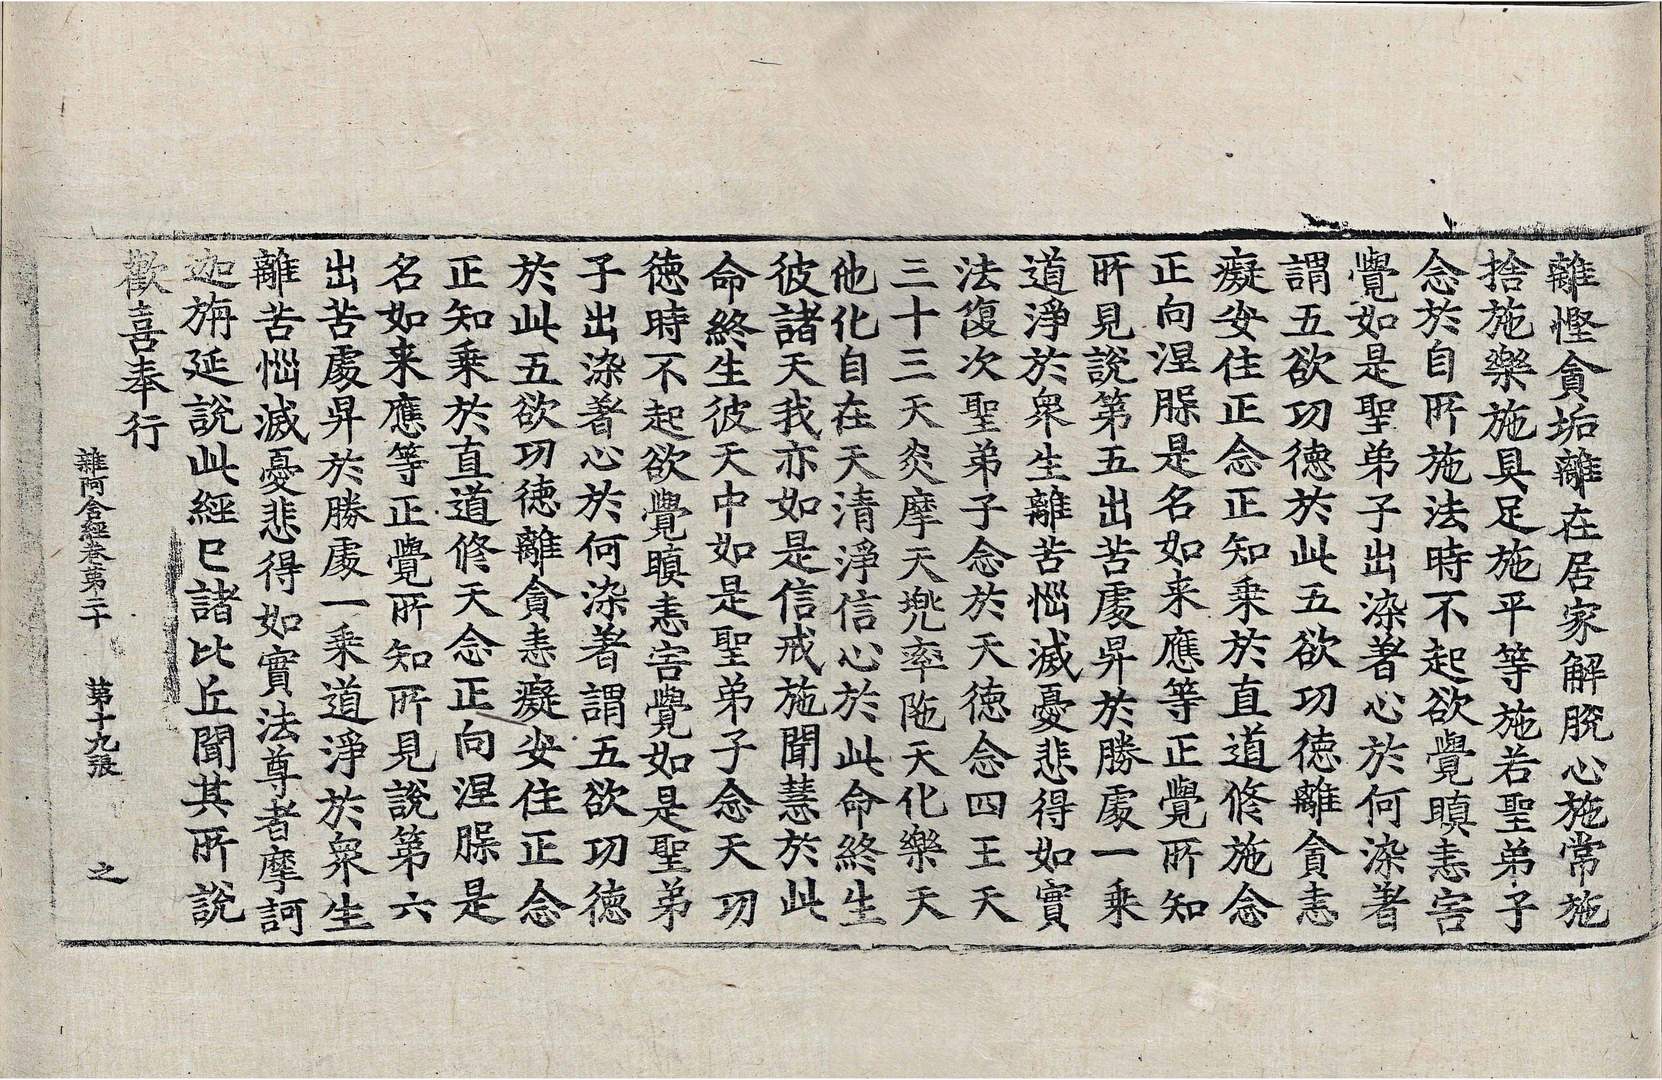 離慳貪垢離在居家解脫心施常施
捨施樂施具足施平等施若聖弟子
念於自所施法時不起欲覺瞋恚害
覺如是聖弟子出染著心於何染著
謂五欲功德於此五欲功德離貪恚
癡安住正念正知乘於直道修施念
正向涅槃是名如来應等正覺所知
所見說第五出苦處昇於勝處一乘
道淨於衆生離苦惱滅憂悲得如實
法復次聖弟子念於天德念四王天
三十三天炎摩天兜率陁天化樂天
他化自在天清淨信心於此命終生
彼諸天我亦如是信戒施聞慧於此
命終生彼天中如是聖弟子念天功
德時不起欲覺瞋恚害覺如是聖弟
子出染著心於何染著謂五欲功德
於此五欲功德離貪恚癡安住正念
正知乘於直道修天念正向涅槃是
名如来應等正覺所知所見說第六
出苦處昇於勝處一乘道淨於衆生
離苦惱滅憂悲得如實法尊者摩訶
迦旃延說此經已諸比丘聞其所說
歡喜奉行
雜阿含經卷第二十　第十九張　之